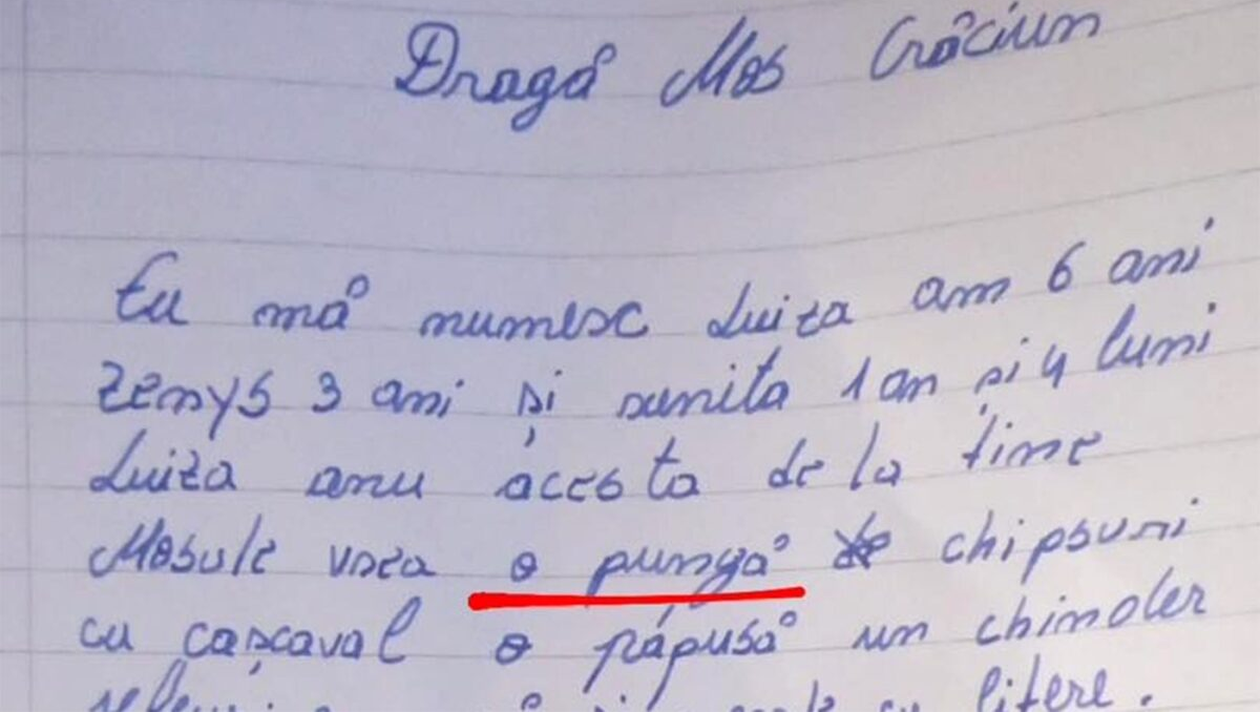 Dragă Mos Crăciun
Eu mă numesc Luiza am 6 ani
Zenys 3 ani și sunita 1 an și 4 luni
Luiza anu acesta de la tine
Mosule vrea o pungă de chipsuri
cu cașcaval o păpusă un chinder
cu litere.